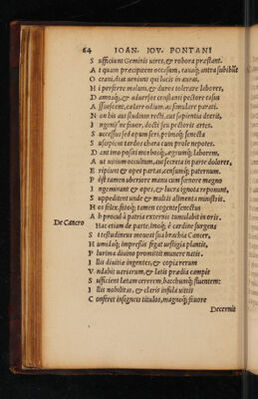 64 IOAN. IOV. PONTANI
Sufficiunt Geminis uires, & robora præstant.
At quam præcipitem occasum,
Hi perferre malum, & duros tolerare labores,
Damnaq;, & aduersos constanti pectore casus
Assuescent, celare odium ac simulare parati.
Non his aus studium recti, aut sapientia deerit,
Ingenij ne fauor, docti seu pectoris artes.
Successus sed opum seri, primoq; senecta
Suscipient terdeo chara cum prole nepotes.
Dant imo possui morboq;, ægrumq; laborem,
Aut uotium occultum, aut secreta in parte dolorem,
Eripiunt & opes partas, censumq; paternum.
Post tamen uberiore manu cum fœnore magno
Ingeminant & opes, & lucra ignota reponunt,
Suppeditent unde & multis alimenta ministris.
His efflux, sitoq; tamen cogente senectus
Ab procul à patria externis tumulabit in oris.
De Cancro
Hac etiam de parte, imoq; è cardine surgens
Si testudineus moueat sua brachia Cancer,
Humidaq; impressis figat uestigia plantis,
Plurima diuino promittit munere natis.
Illis diuitiæ ingentes, & copia rerum
Vndabit uariarum, & latis prædia campis
Sufficient latam cererem, bacchumq; fluentem:
Illis nobilitas, & claris insula uittis
Conferet insignes titulos, magnoq; fauore
Decernit